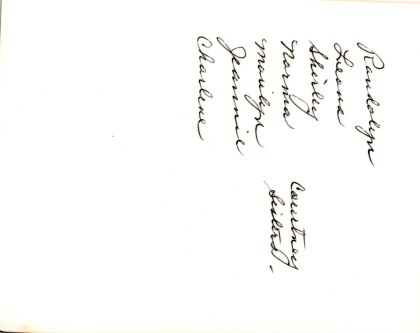 Randolyn
Leona
Shirley
Norma
Marilyn
Jeannie
Charlene
Courtney
Sisters.